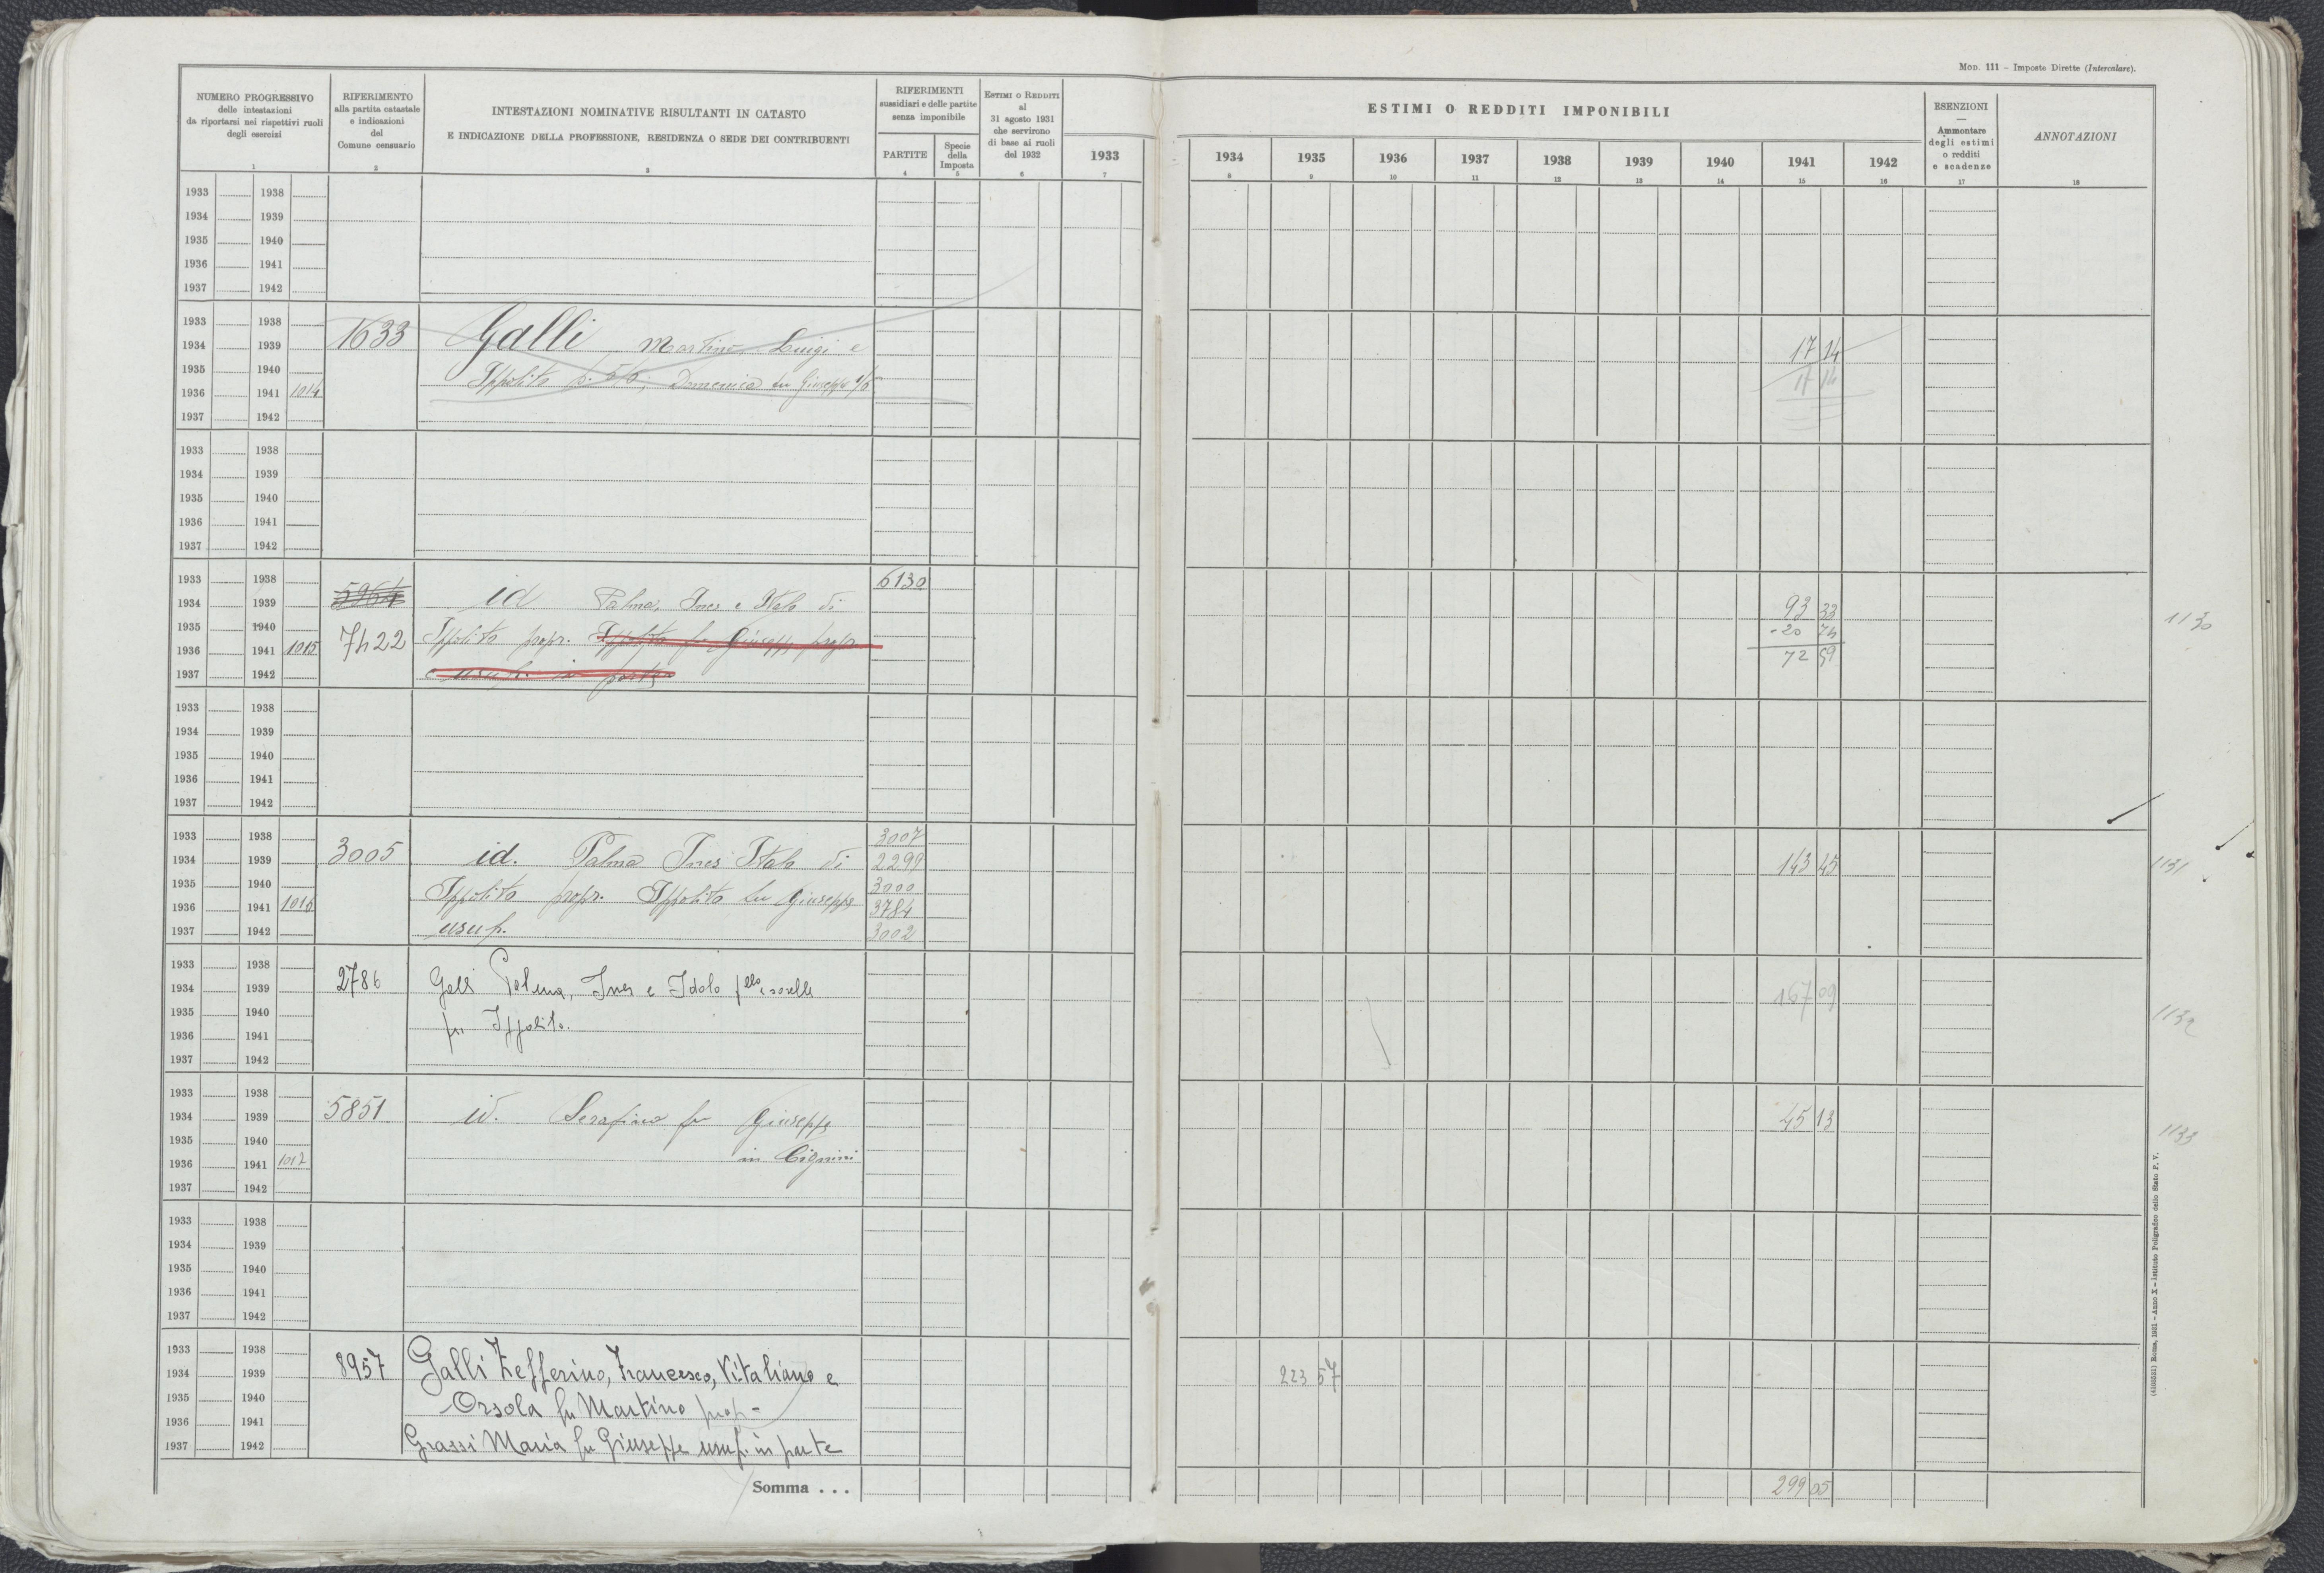 Mod. 111 – Imposte Dirette (Intercalare).
NUMERO PROGRESSIVO
delle intestazioni
da riportarsi nei rispettivi ruoli
degli esercizi
1
RIFERIMENTO
alla partita catastale
e indicazioni
del
Comune censuario
2
INTESTAZIONI NOMINATIVE RISULTANTI IN CATASTO
E INDICAZIONE DELLA PROFESSIONE, RESIDENZA O SEDE DEI CONTRIBUENTI
3
RIFERIMENTI
sussidiari e delle partite
senza imponibile
PARTITE
4
Specie
della
Imposta
5
Estimi o Redditi
al
31 agosto 1931
che servirono
di base ai ruoli
del 1932
6
ESTIMI O REDDITI IMPONIBILI
1933 1934 1935 1936 1937 1938 1939 1940 1941 1942
7 8 9 10 11 12 13 14 15 16
ESENZIONI
—
Ammontare
degli estimi
o redditi
e scadenze
17
ANNOTAZIONI
18
1933 1938
1934 1939
1935 1940
1936 1941
1937 1942
1933 1938
1934 1939 1633 Galli Martino, Luigi e 17 14
1935 1940 Ippolito p. 5/6, Domenica fu Giuseppe 1/6 17 14
1936 1941 1014
1937 1942
1933 1938
1934 1939
1935 1940
1936 1941
1937 1942
1933 1938 5964 6130
1934 1939 id Palma, Ines e Italo di 93 33
1935 1940 7422 Ippolito propr. Ippolito fu Giuseppe propr -20 74 1130
1936 1941 1015 72 59
1937 1942 e usuf. in parte
1933 1938
1934 1939
1935 1940
1936 1941
1937 1942
1933 1938 3007
1934 1939 3005 id. Palma Ines Italo di 2299 143 45 1131
1935 1940 Ippolito propr. Ippolito fu Giuseppe 3000
1936 1941 1016 3784
1937 1942 usuf. 3002
1933 1938
1934 1939 2786 Galli Palma, Ines e Idolo f.llo e sorelle 167 09
1935 1940 fu Ippolito. 1132
1936 1941
1937 1942
1933 1938
1934 1939 5851 id. Serafina fu Giuseppe 45 13 1133
1935 1940 in Cignini
1936 1941 1017
1937 1942
1933 1938
1934 1939
1935 1940
1936 1941
1937 1942
1933 1938
1934 1939 8957 Galli Zefferino, Francesco, Vitaliano e 223 57
1935 1940 Orsola fu Martino prop-
1936 1941 Grassi Maria fu Giuseppe usuf. in parte
1937 1942
Somma . . . 299 05
(4100531) Roma, 1931 – Anno X – Istituto Poligrafico dello Stato P. V.